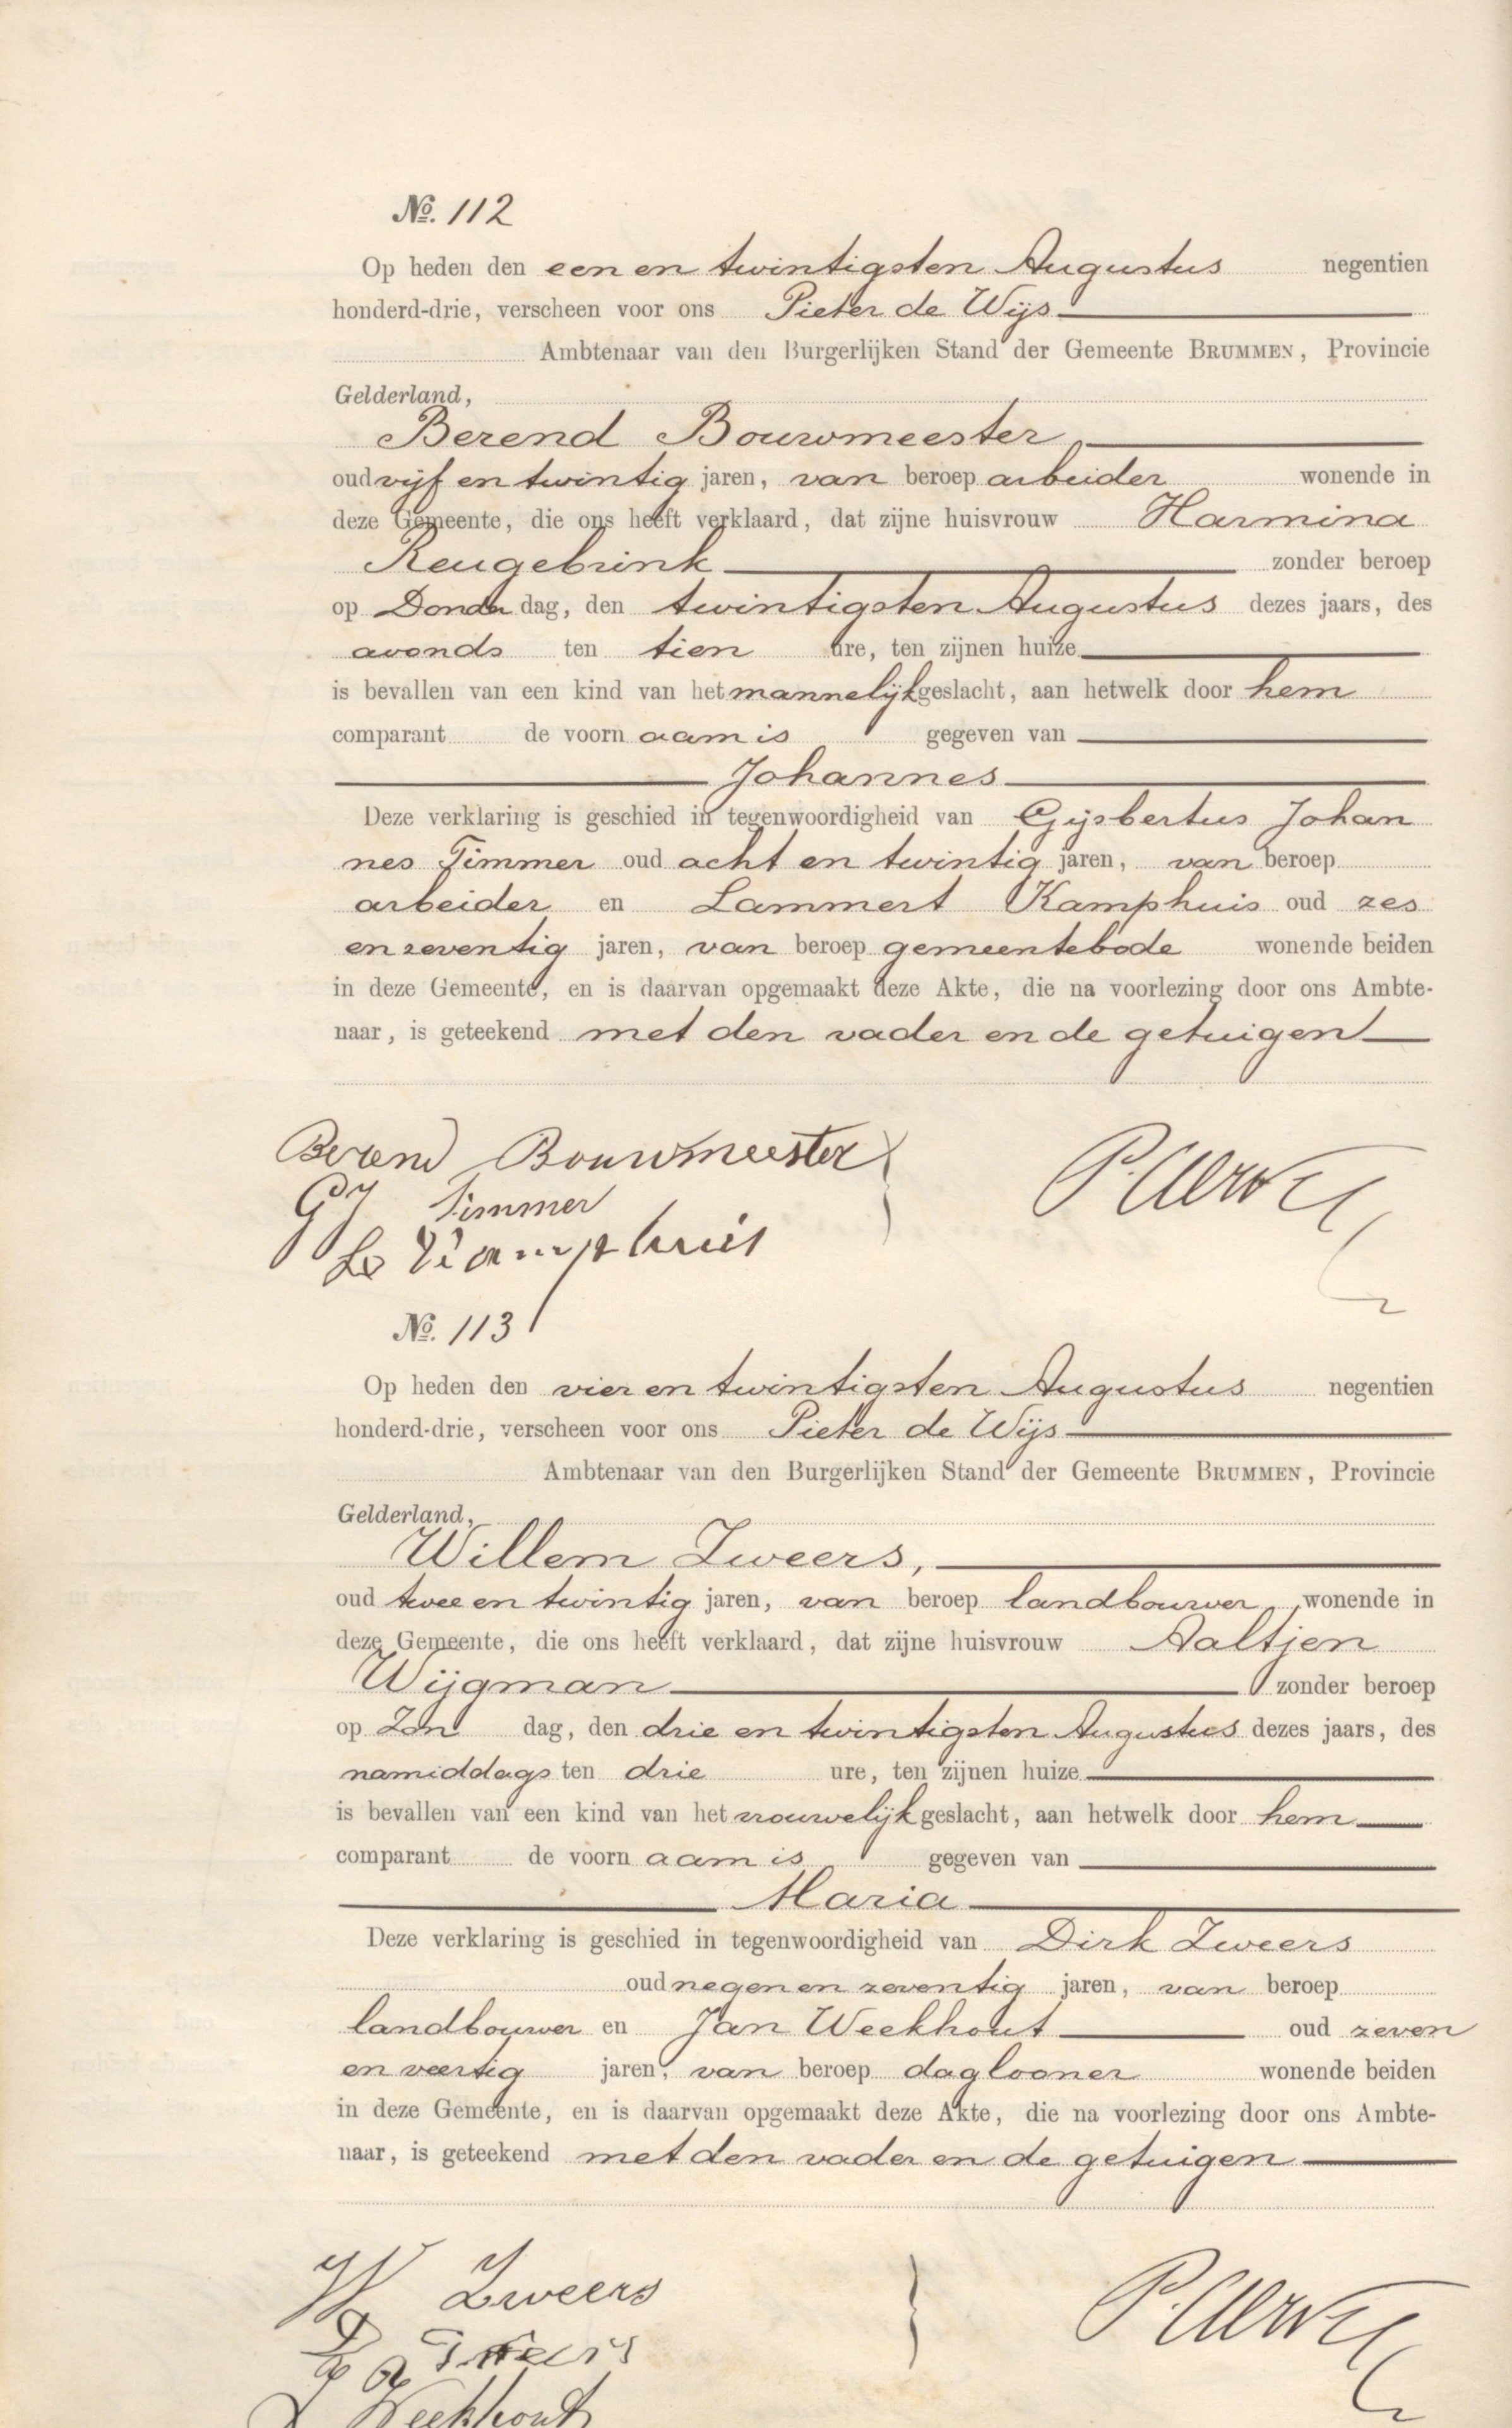 No. 112
Op heden den een en twintigsten Augustus negentien
honderd-drie, verscheen voor ons Pieter de Wijs
Ambtenaar van den Burgerlijken Stand der Gemeente BRUMMEN, Provincie
Gelderland,
Berend Bouwmeester,
oud vijf en twintig jaren, van beroep arbeider wonende in
deze Gemeente, die ons heeft verklaard, dat zijne huisvrouw Harmina
Reugebrink zonder beroep
op Donder dag, den twintigsten Augustus dezes jaars, des
avonds ten tien ure, ten zijnen huize
is bevallen van een kind van het mannelijk geslacht, aan hetwelk door hem
comparant de voorn aam is gegeven van
Johannes
Deze verklaring is geschied in tegenwoordigheid van Gijsbertus Johan
nes Timmer oud acht en twintig jaren, van beroep
arbeider en Lammert Kamphuis oud zes
en zeventig jaren, van beroep gemeentebode wonende beiden
in deze Gemeente, en is daarvan opgemaakt deze Akte, die na voorlezing door ons Ambte-
naar, is geteekend met den vader en de getuigen
Berend Bouwmeester
GJ Timmer
L Kamphuis
No. 113
Op heden den vier en twintigsten Augustus negentien
honderd-drie, verscheen voor ons Pieter de Wijs
Ambtenaar van den Burgerlijken Stand der Gemeente BRUMMEN, Provincie
Gelderland,
Willem Zweers,
oud twee en twintig jaren, van beroep landbouwer, wonende in
deze Gemeente, die ons heeft verklaard, dat zijne huisvrouw Aaltjen
Wijgman zonder beroep
op Zon dag, den drie en twintigsten Augustus dezes jaars, des
namiddags ten drie ure, ten zijnen huize
is bevallen van een kind van het vrouwelijk geslacht, aan hetwelk door hem
comparant de voorn aam is gegeven van
Maria
Deze verklaring is geschied in tegenwoordigheid van Dirk Zweers
oud negen en zeventig jaren, van beroep
landbouwer en Jan Weekhout oud zeven
en veertig jaren, van beroep daglooner wonende beiden
in deze Gemeente, en is daarvan opgemaakt deze Akte, die na voorlezing door ons Ambte-
naar, is geteekend met den vader en de getuigen
W Zweers
D Zweers
Weekhout